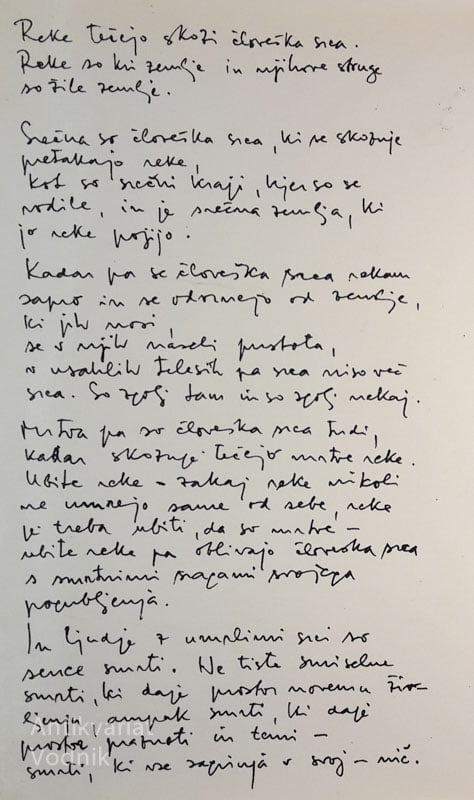 Reke tečejo skozi človeška srca.
Reke so kri zemlje in njihove struge
so žile zemlje.
Srečna so človeška srca, ki se skoznje
pretakajo reke,
kot so srečni kraji, kjer so se
rodile, in je srečna zemlja, ki
jo reke pojijo.
Kadar pa se človeška srca nekam
zapro in se odvrnejo od zemlje,
ki jih nosi,
se v njih naseli pustota,
v usahlih telesih pa srca niso več
srca. So zgolj tam in so zgolj nekaj.
Mrtva pa so človeška srca tudi,
kadar skoznje tečejo mrtve reke.
Ubite reke – zakaj reke nikoli
ne umrejo same od sebe, reke
je treba ubiti, da so mrtve –
ubite reke pa oblivajo človeška srca
s smrtnimi sragami svojega
pogubljenja.
In ljudje z umrlimi srci so
sence smrti. Ne tiste smiselne
smrti, ki daje prostor novemu živ-
ljenju, ampak smrti, ki daje
prostor praznoti in temi –
smrti, ki vse zapira v svoj – nič.
Antikvariat
Vodnik